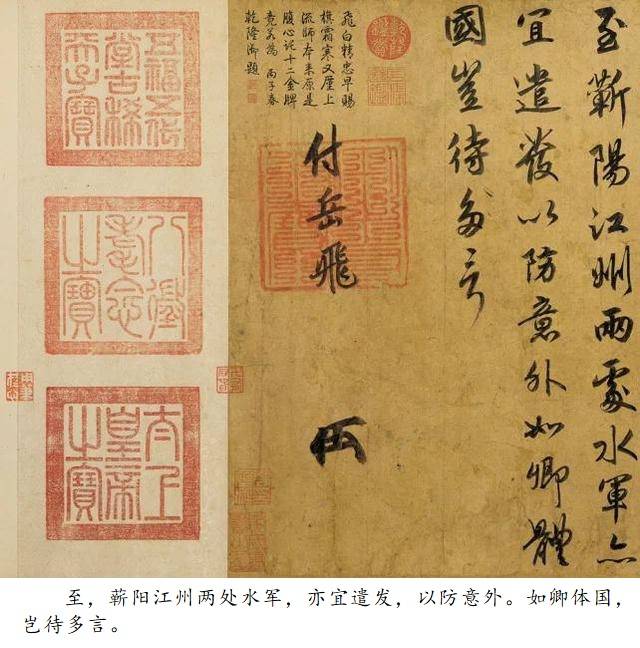 至蘄陽江州兩處水軍亦
宜遣發以防意外如卿體
國豈待多言
付岳飛
飛白精忠早賜
霜寒又上
流師本来原是
腹心託十二金牌
竟若為 丙子春
乾隆御題
五福五代
堂古稀
天子寶
八徵
耄念
之寶
太上
皇帝
之寶
至，蕲阳江州两处水军，亦宜遣发，以防意外。如卿体国，
岂待多言。